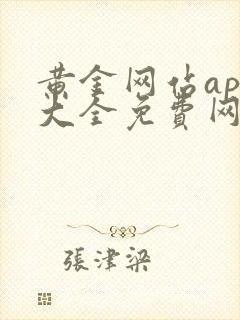 黄金网站ap
大全免費网
張津梁